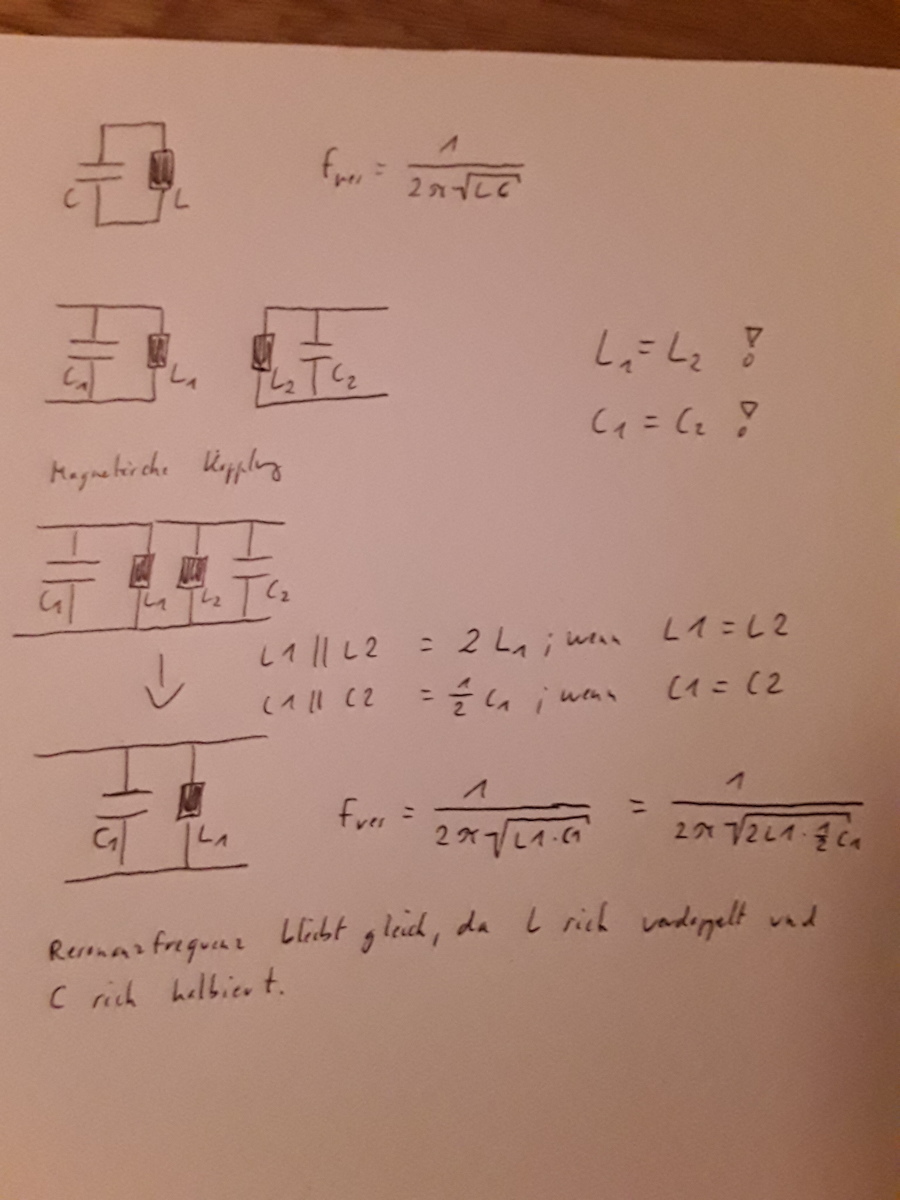 C L
f_res = 1 / (2π√(LC))
C₁ L₁ L₂ C₂
L₁ = L₂ !
C₁ = C₂ !
Magnetische Kopplung
C₁ L₁ L₂ C₂
L1 || L2 = 2 L₁ ; wenn L1 = L2
C1 || C2 = 1/2 C₁ ; wenn C1 = C2
C₁ L₁
f_res = 1 / (2π√(L1·C1)) = 1 / (2π√(2L1·1/2 C₁))
Resonanzfrequenz bleibt gleich, da L sich verdoppelt und
C sich halbiert.